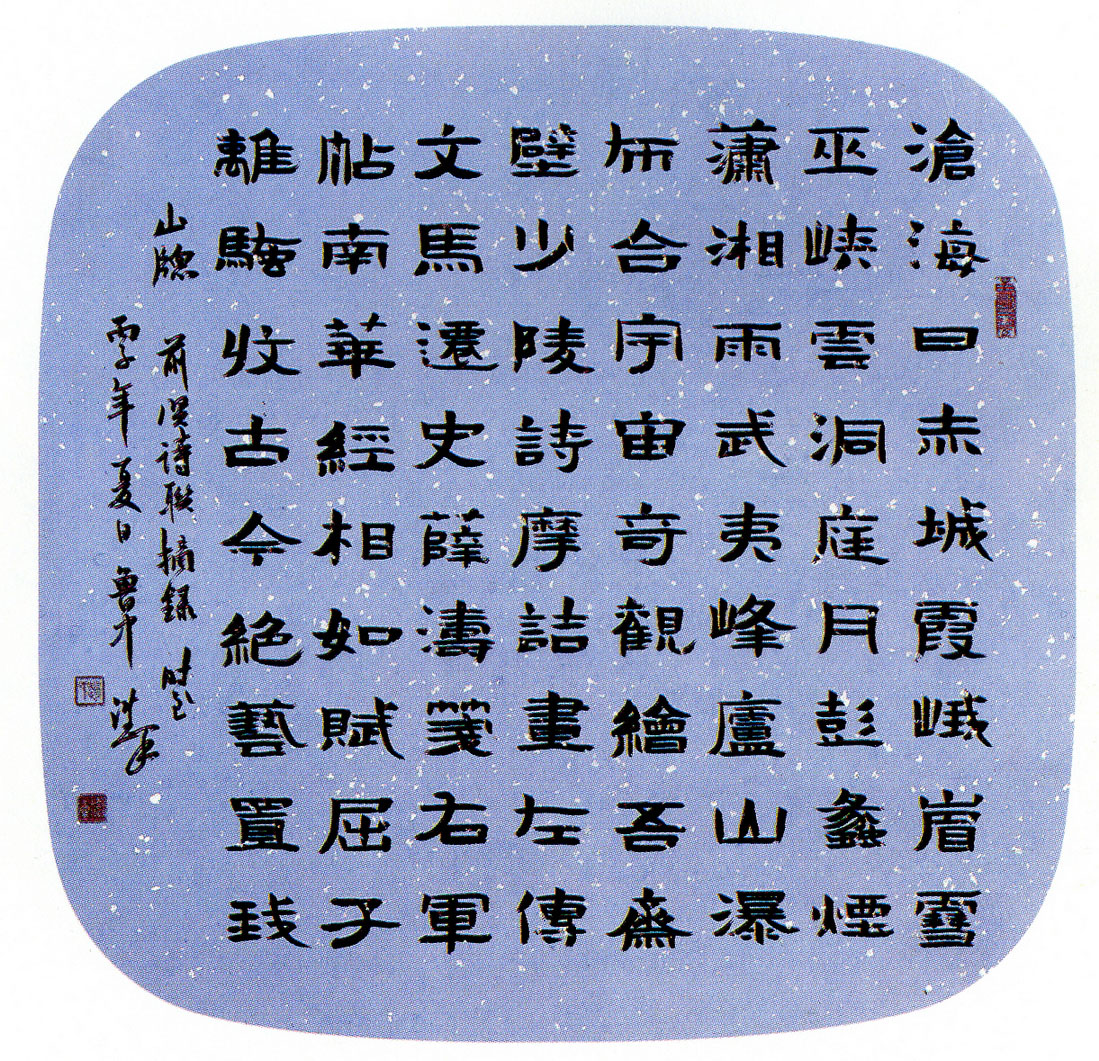 滄海日赤城霞峨眉雪
巫峽雲洞庭月彭蠡煙
瀟湘雨武夷峰廬山瀑
布合宇宙奇觀繪吾齋
壁少陵詩摩詰畫左傳
文馬遷史薛濤箋右軍
帖南華經相如賦屈子
離騷收古今絕藝置我
山牕 前賢诗聯摘録 时在
丙子年夏日